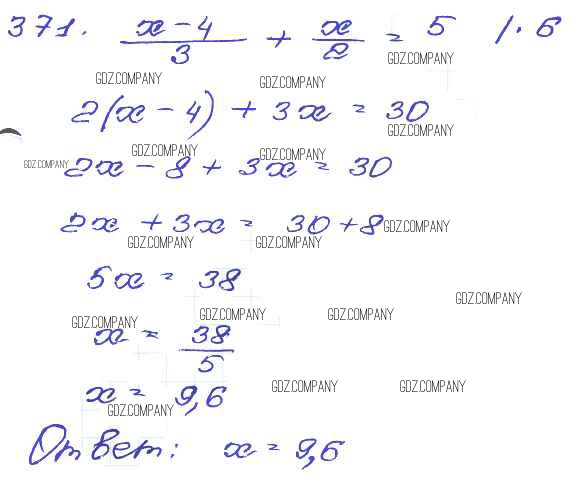 371. (x-4)/3 + x/2 = 5 /·6
GDZ.COMPANY
GDZ.COMPANY GDZ.COMPANY
2(x-4) + 3x = 30
GDZ.COMPANY
GDZ.COMPANY GDZ.COMPANY
GDZ.COMPANY 2x - 8 + 3x = 30
2x + 3x = 30 + 8 GDZ.COMPANY
GDZ.COMPANY GDZ.COMPANY
5x = 38
GDZ.COMPANY
GDZ.COMPANY GDZ.COMPANY GDZ.COMPANY
x = 38/5
x = 9,6 GDZ.COMPANY GDZ.COMPANY
GDZ.COMPANY
Ответ: x = 9,6